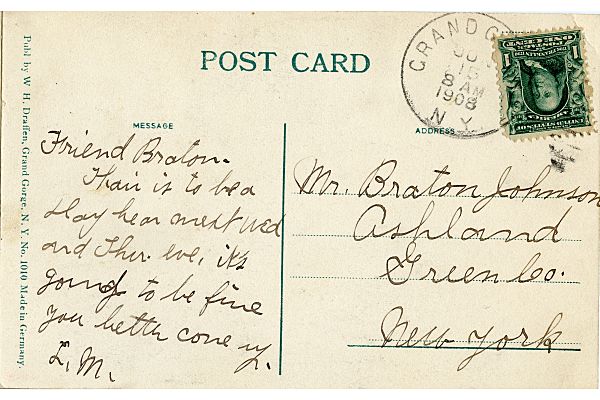 POST CARD
GRAND GO
15
8 AM
1908
N.Y.
MESSAGE
ADDRESS
Friend Braton.
Thair is to be a
play hear next Wed
and Thur. eve, it's
going to be fine
you better come up.
L. M.
Mr. Braton Johnson
Ashland
Green Co.
New York
Publ by W. H. Draffen, Grand Gorge, N. Y. No. 1010 Made in Germany.
1
1